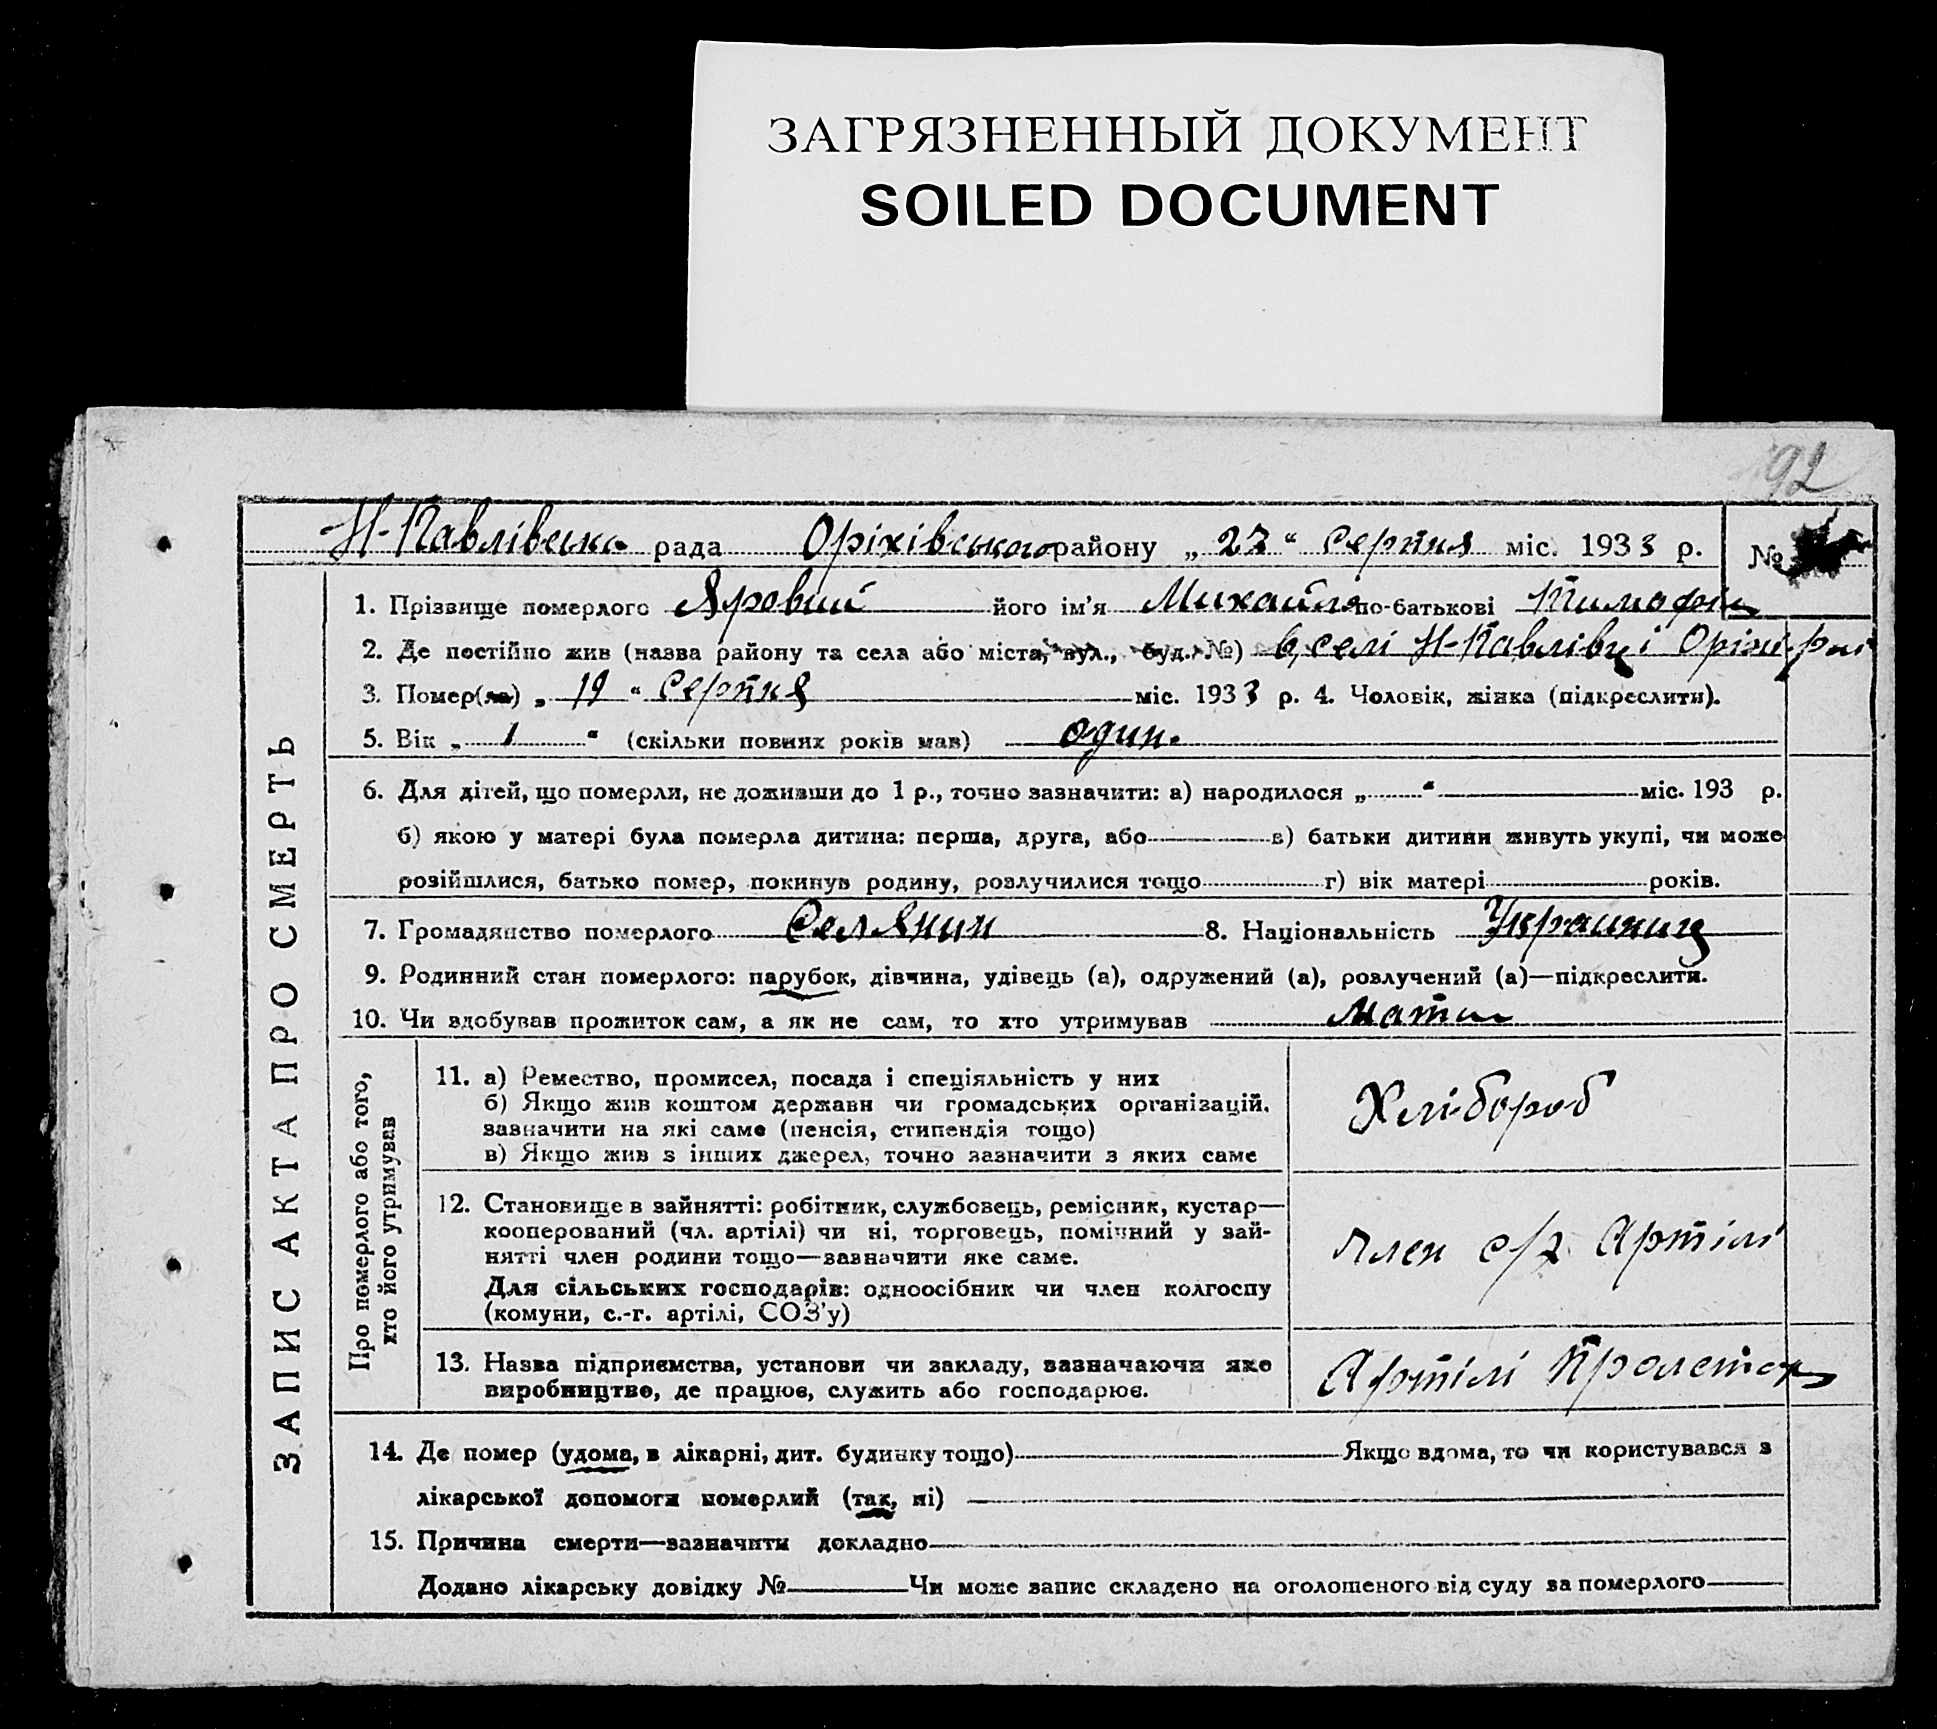 ЗАГРЯЗНЕННЫЙ ДОКУМЕНТ
SOILED DOCUMENT
92
Н-Павлівська рада Оріхівського району „ 23 “ серпня міс. 1933 р. №
ЗАПИС АКТА ПРО СМЕРТЬ
1. Прізвище померлого Яровий його ім’я Михайло по-батькові Тимофій
2. Де постійно жив (назва району та села або міста, вул., буд. №) в селі Н-Павлівці Оріхі. р-ні
3. Помер(ла) „ 19 “ серпня міс. 1933 р. 4. Чоловік, жінка (підкреслити).
5. Вік „ 1 “ (скільки повних років мав) один.
6. Для дітей, що померли, не доживши до 1 р., точно зазначити: а) народилося „ “ міс. 193 р.
б) якою у матері була померла дитина: перша, друга, або в) батьки дитини живуть укупі, чи може
розійшлися, батько помер, покинув родину, розлучилися тощо г) вік матері років.
7. Громадянство померлого Селянин 8. Національність Українець
9. Родинний стан померлого: парубок, дівчина, удівець (а), одружений (а), розлучений (а)—підкреслити.
10. Чи здобував прожиток сам, а як не сам, то хто утримував Мати
Про померлого або того,
хто його утримував
11. а) Ремество, промисел, посада і спеціяльність у них
б) Якщо жив коштом держави чи громадських організацій.
зазначити на які саме (пенсія, стипендія тощо)
в) Якщо жив з інших джерел, точно зазначити з яких саме
Хлібороб
12. Становище в зайнятті: робітник, службовець, ремісник, кустар—
кооперований (чл. артілі) чи ні, торговець, помічний у зай-
нятті член родини тощо—зазначити яке саме.
Для сільських господарів: одноосібник чи член колгоспу
(комуни, с.-г. артілі, СОЗ’у)
Член с/г Артілі
13. Назва підприємства, установи чи закладу, зазначаючи яке
виробництво, де працює, служить або господарює.
Артілі Пролетар
14. Де помер (удома, в лікарні, дит. будинку тощо) Якщо вдома, то чи користувався з
лікарської допомоги померлий (так, ні)
15. Причина смерти—зазначити докладно
Додано лікарську довідку № Чи може запис складено на оголошеного від суду за померлого